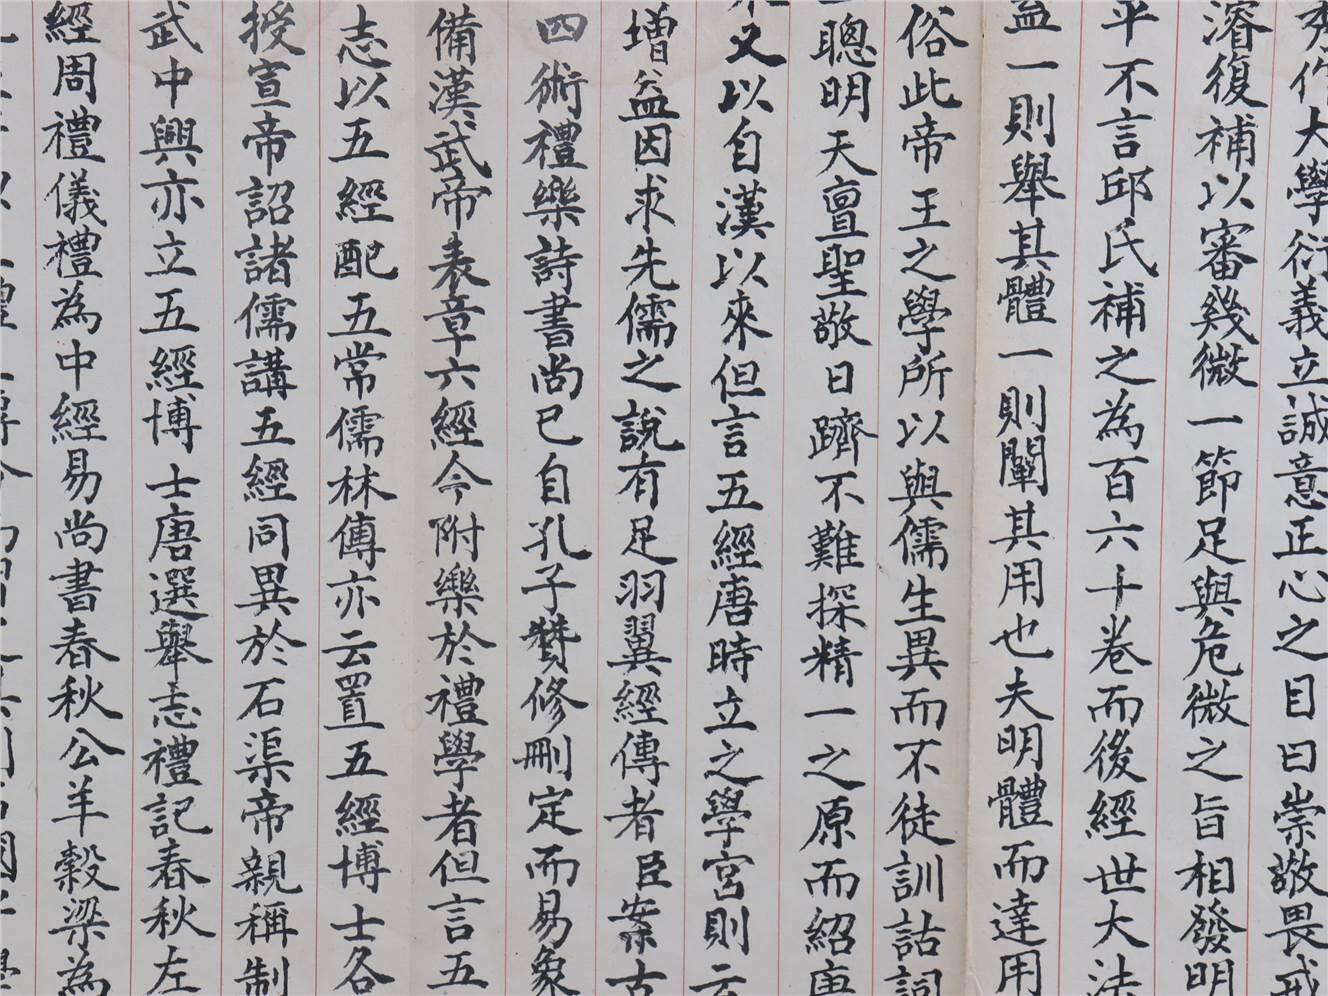 作大學衍義立誠意正心之目曰崇敬畏戒
濬復補以審幾微一節足與危微之旨相發明
平不言邱氏補之為百六十卷而後經世大法
益一則舉其體一則闡其用也夫明體而達用
俗此帝王之學所以與儒生異而不徒訓詁詞
聰明天亶聖敬日躋不難探精一之原而紹唐
又以自漢以來但言五經唐時立之學宮則云
增益因求先儒之說有足羽翼經傳者臣案古
四術禮樂詩書尚已自孔子贊修刪定而易象
備漢武帝表章六經今附樂於禮學者但言五
志以五經配五常儒林傳亦云置五經博士各
授宣帝詔諸儒講五經同異於石渠帝親稱制
武中興亦立五經博士唐選舉志禮記春秋左
經周禮儀禮為中經易尚書春秋公羊穀梁為